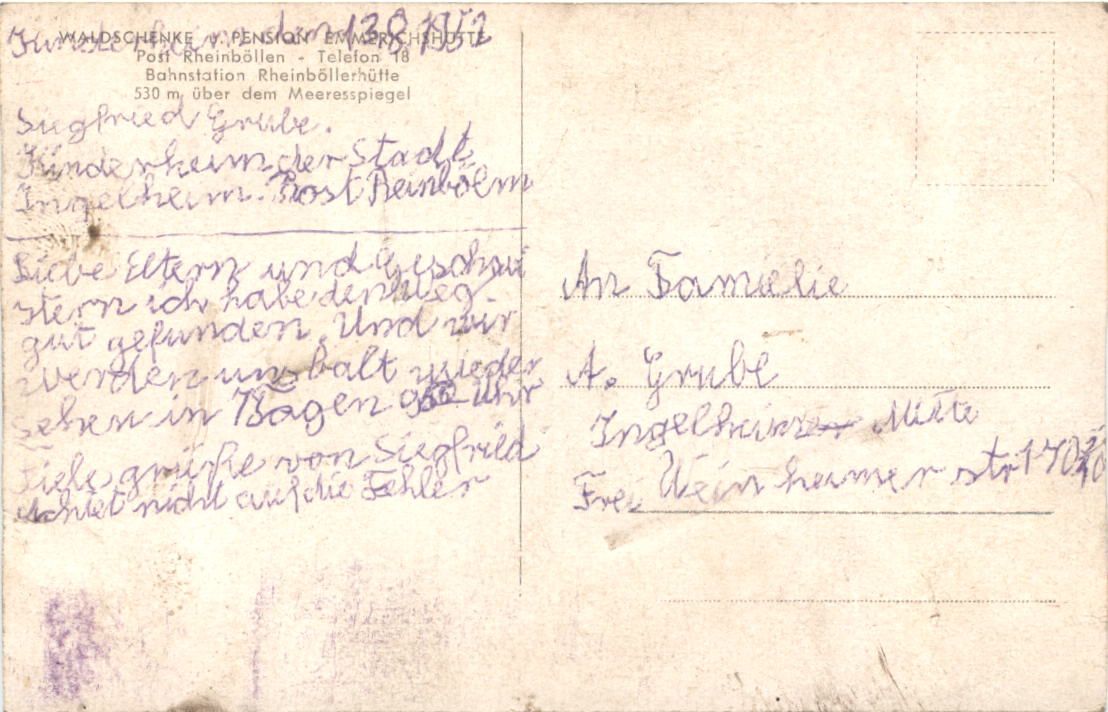 den 13.8.1952
WALDSCHENKE u. PENSION EMMERICHSHÜTTE
Post Rheinböllen - Telefon 18
Bahnstation Rheinböllerhütte
530 m über dem Meeresspiegel
Siegfried Grube.
Kinderheim der Stadt
Ingelheim. Post Reinbölm
Liebe Eltern und Geschwi
stern ich habe den Weg
gut gefunden. Und wir
werden uns balt wieder
sehen in Uhr
Fiele grüße von Siegfried
Achtet nicht auf die Fehler
An Familie
A. Grube
Ingelheim Mitte
Frei Weinheimer str 170